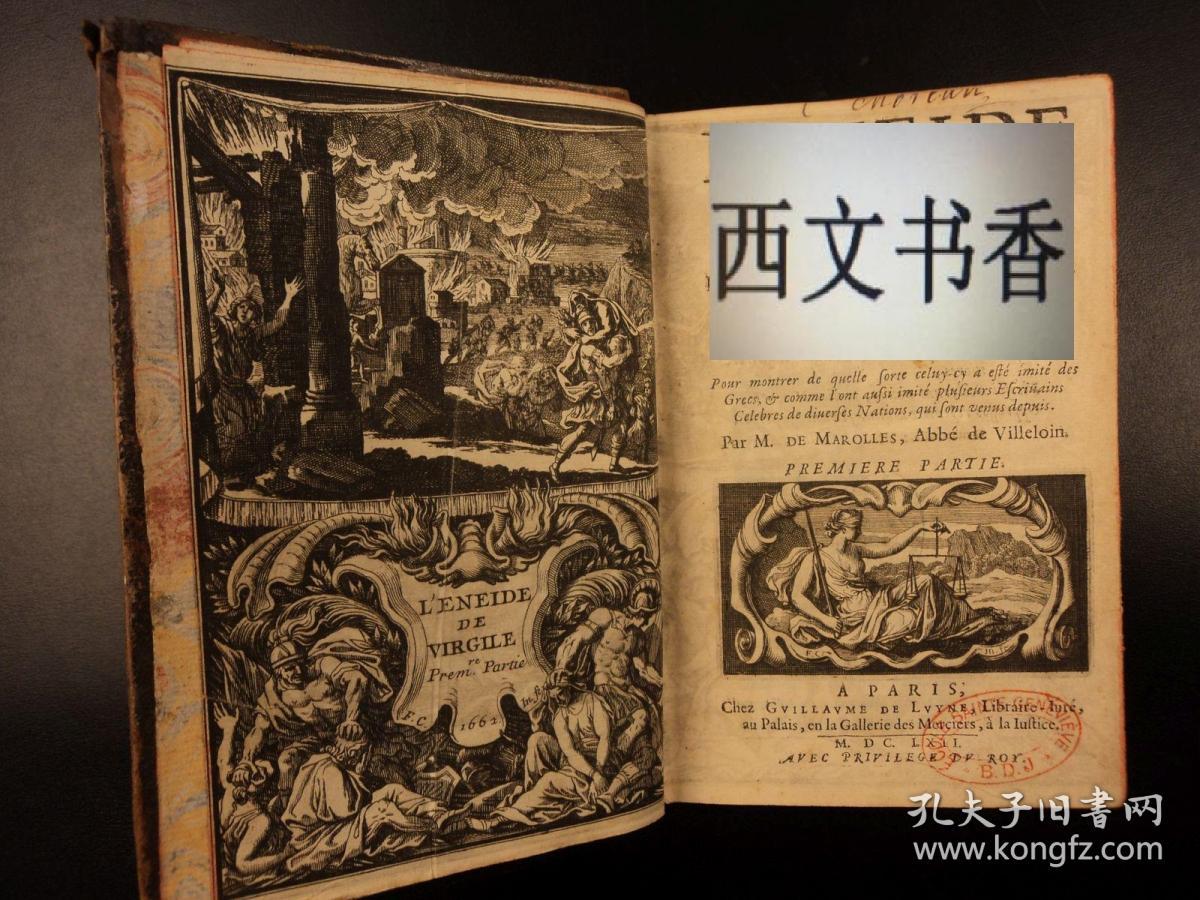 L'ENEIDE
DE
VIRGILE
Prem.re Partie
F.C.
1662
西文书香
Pour montrer de quelle sorte celuy-cy a esté imité des
Grecs, & comme l'ont aussi imité plusieurs Escriuains
Celebres de diuerses Nations, qui sont venus depuis.
Par M. DE MAROLLES, Abbé de Villeloin.
PREMIERE PARTIE.
A PARIS,
Chez GVILLAVME DE LVYNE, Libraire Iuré,
au Palais, en la Gallerie des Merciers, à la Iustice.
M. DC. LXII.
AVEC PRIVILEGE DV ROY.
B.D.J
孔夫子旧書网
www.kongfz.com